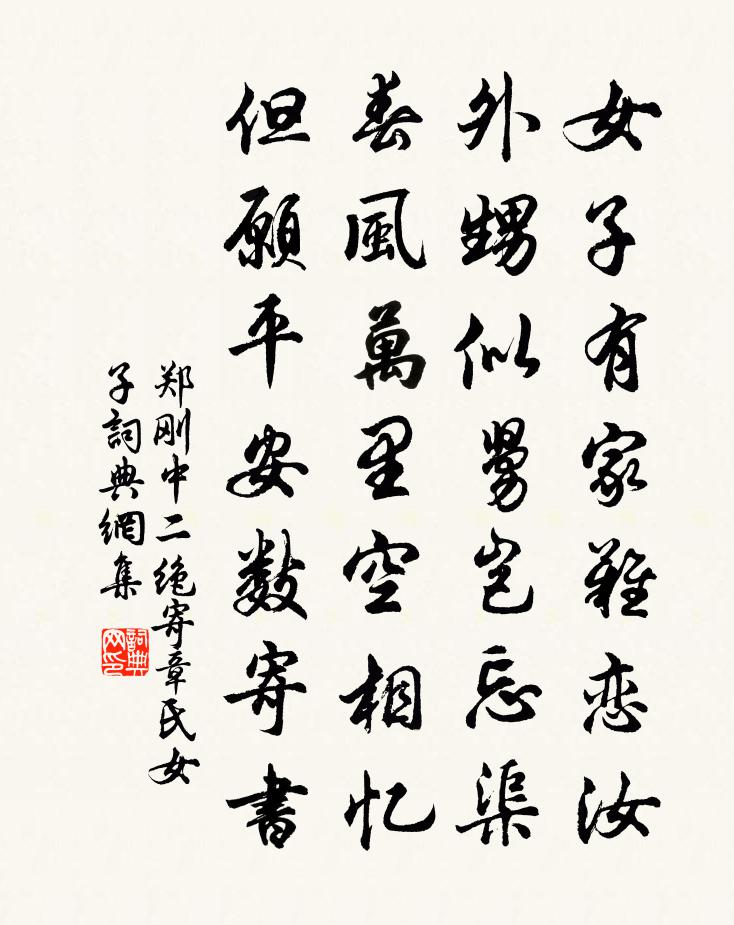 女子有家难恋汝
外甥似舅岂忘渠
春風萬里空相忆
但願平安數寄書
郑刚中二绝寄章氏女
子詞典網集
詞典网印